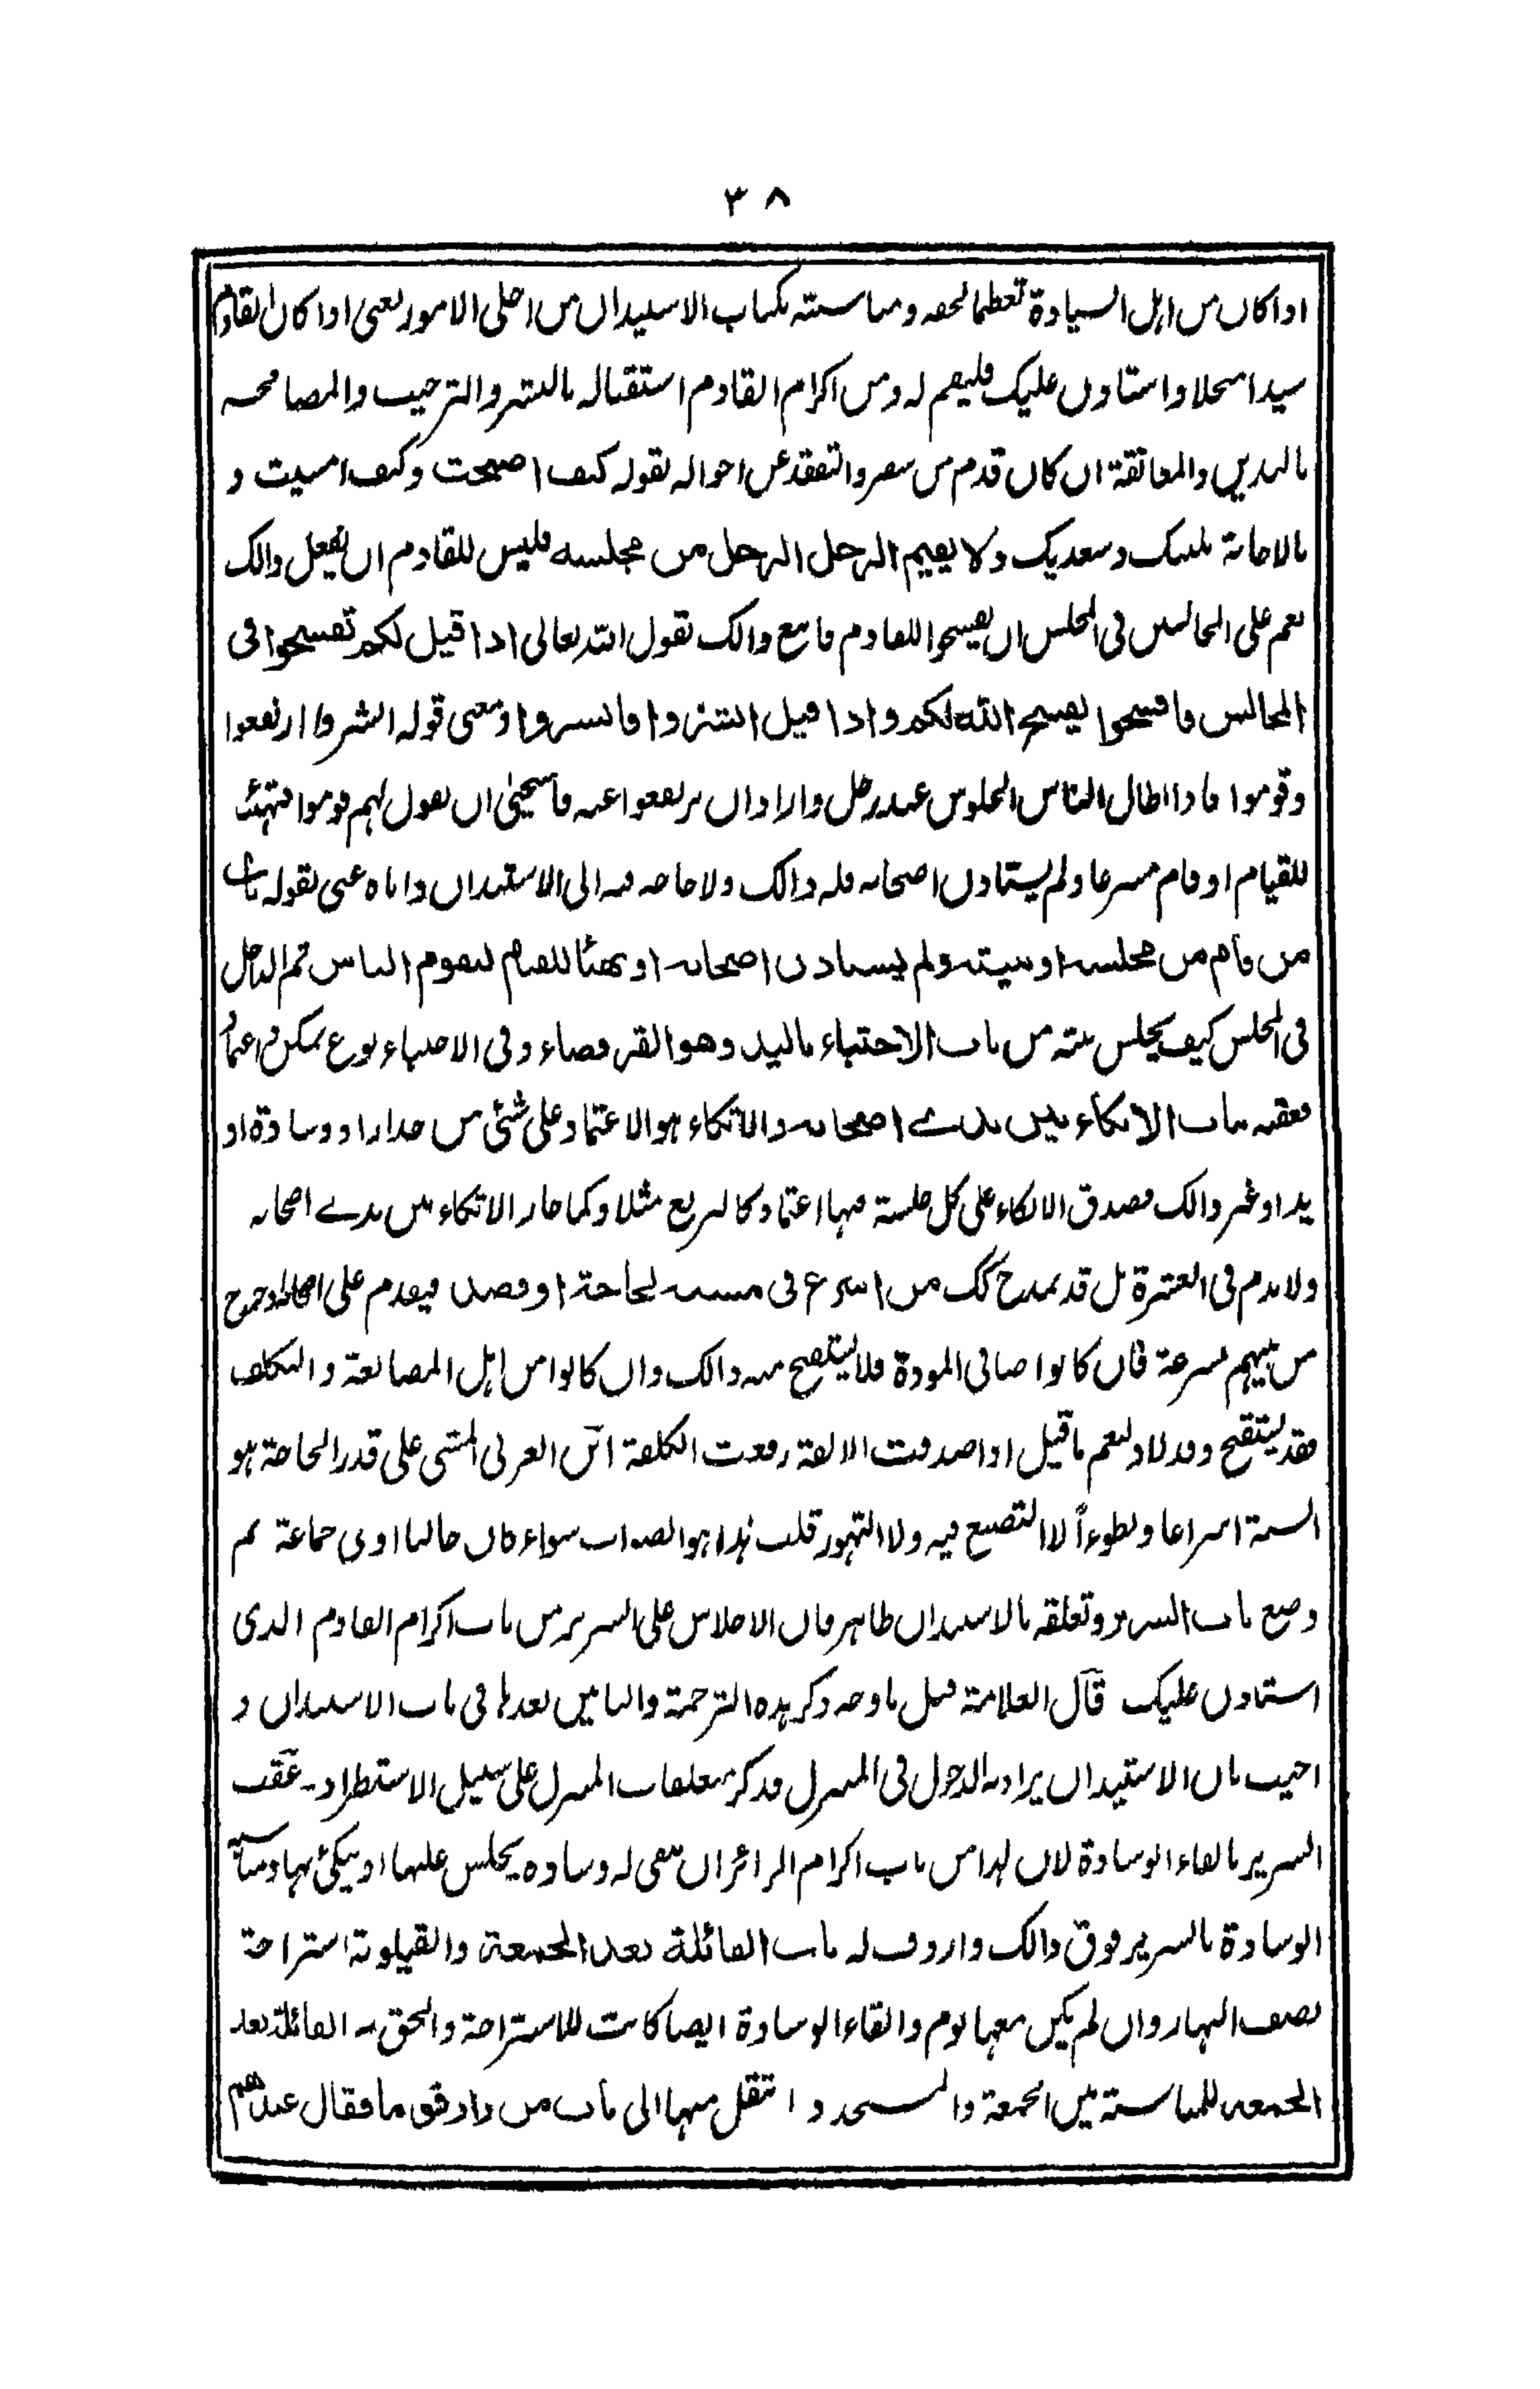 ٣٨
اذا كان من اہل السيادة تعظيما لحقہ ومناسبتہ بكتاب الاستيذان من اجلى الامور يعنى اذا كان القادم
سيدا مبجلا واستاذن عليك فليقم لہ ومن اكرام القادم استقبالہ بالبشر والترحيب والمصافحہ
باليدين والمعانقة ان كان قدم من سفر والتفقد عن احوالہ بقولہ كيف اصبحت وكيف امسيت و
بالاجابة بلبيك وسعديك ولا يقيم الرجل الرجل من مجلسه فليس للقادم ان يفعل ذالك
نعم على الجالسين فى المجلس ان يفسحوا للقادم فاتبع ذالك بقول اللہ تعالى اذا قيل لكم تفسحوا فى
المجالس فافسحوا يفسح الله لكم واذا قيل انشزوا فانشزوا ومعنى قولہ انشزوا ارتفعوا
وقوموا فاذا اطال الناس الجلوس عند رجل واراد ان يرتفعوا عنہ فاستحيى ان يقول لہم قوموا فتهيئ
للقيام او قام مسرعا ولم يستاذن اصحابہ فلہ ذالك ولا حاجہ فيہ الى الاستيذان واياہ عنى بقولہ باب
من قام من مجلسه او بيته ولم يستاذن اصحابه او تهيأ للقيام ليقوم الناس ثم الداخل
فى المجلس كيف يجلس بينہ من باب الاحتباء باليد وهو القرفصاء وفى الاحتباء نوع تمكن واعتماد
فعقبہ بباب الاتكاء بين يدے اصحابه والاتكاء ہو الاعتماد على شئ من جدار او وسادة او
يد او غير ذالك فصدق الاتكاء على كل جلسة فيہا اعتماد كالتربع مثلا وكما جاز الاتكاء بين يدے اصحابہ
ولا يذم فى العشرة بل قد يمدح كك من اسرع فى مشيه لحاجة او قصد فيقدم على اصحابہ وخروج
من بينہم بسرعة فان كانوا صافى المودة فلا يستقبح منہ ذالك وان كانوا من اہل المصانعة والتكلف
فقد يستقبح وقد لا ولنعم ما قيل اذا صدقت الالفة رفعت الكلفة ابن العربى المشى على قدر الحاجة ہو
السنة اسراعا وبطوءاً لا التصنع فيہ ولا التهور قلت ہذا ہو الصواب سواء كان جالسا او فى جماعة ثم
وضع باب السرير وتعلقہ بالاستيذان ظاہر فان الاجلاس على السرير من باب اكرام القادم الذى
استاذن عليك قال العلامة قيل ما وجہ ذكر ہذہ الترجمة والبابين بعدہا فى باب الاستيذان و
اجيب بان الاستيذان يراد بہ الدخول فى المنزل فذكر متعلقات المنزل على سبيل الاستطراد۔ عقب
السرير بالقاء الوسادة لان ہذا من باب اكرام الزائر ان تلقى لہ وسادہ يجلس عليها او يتكئ بہا ومناسبة
الوسادة بالسرير فوق ذالك واردف لہ باب القائلة بعد الجمعة والقيلولة استراحة
نصف النہار وان لم يكن معہا نوم والقاء الوسادة ايضا كانت للاستراحة والحق بہ القائلة بعد
الجمعہ للمناسبة بين الجمعة والمسجد وانتقل منہا الى باب من زار قوما فقال عندهم